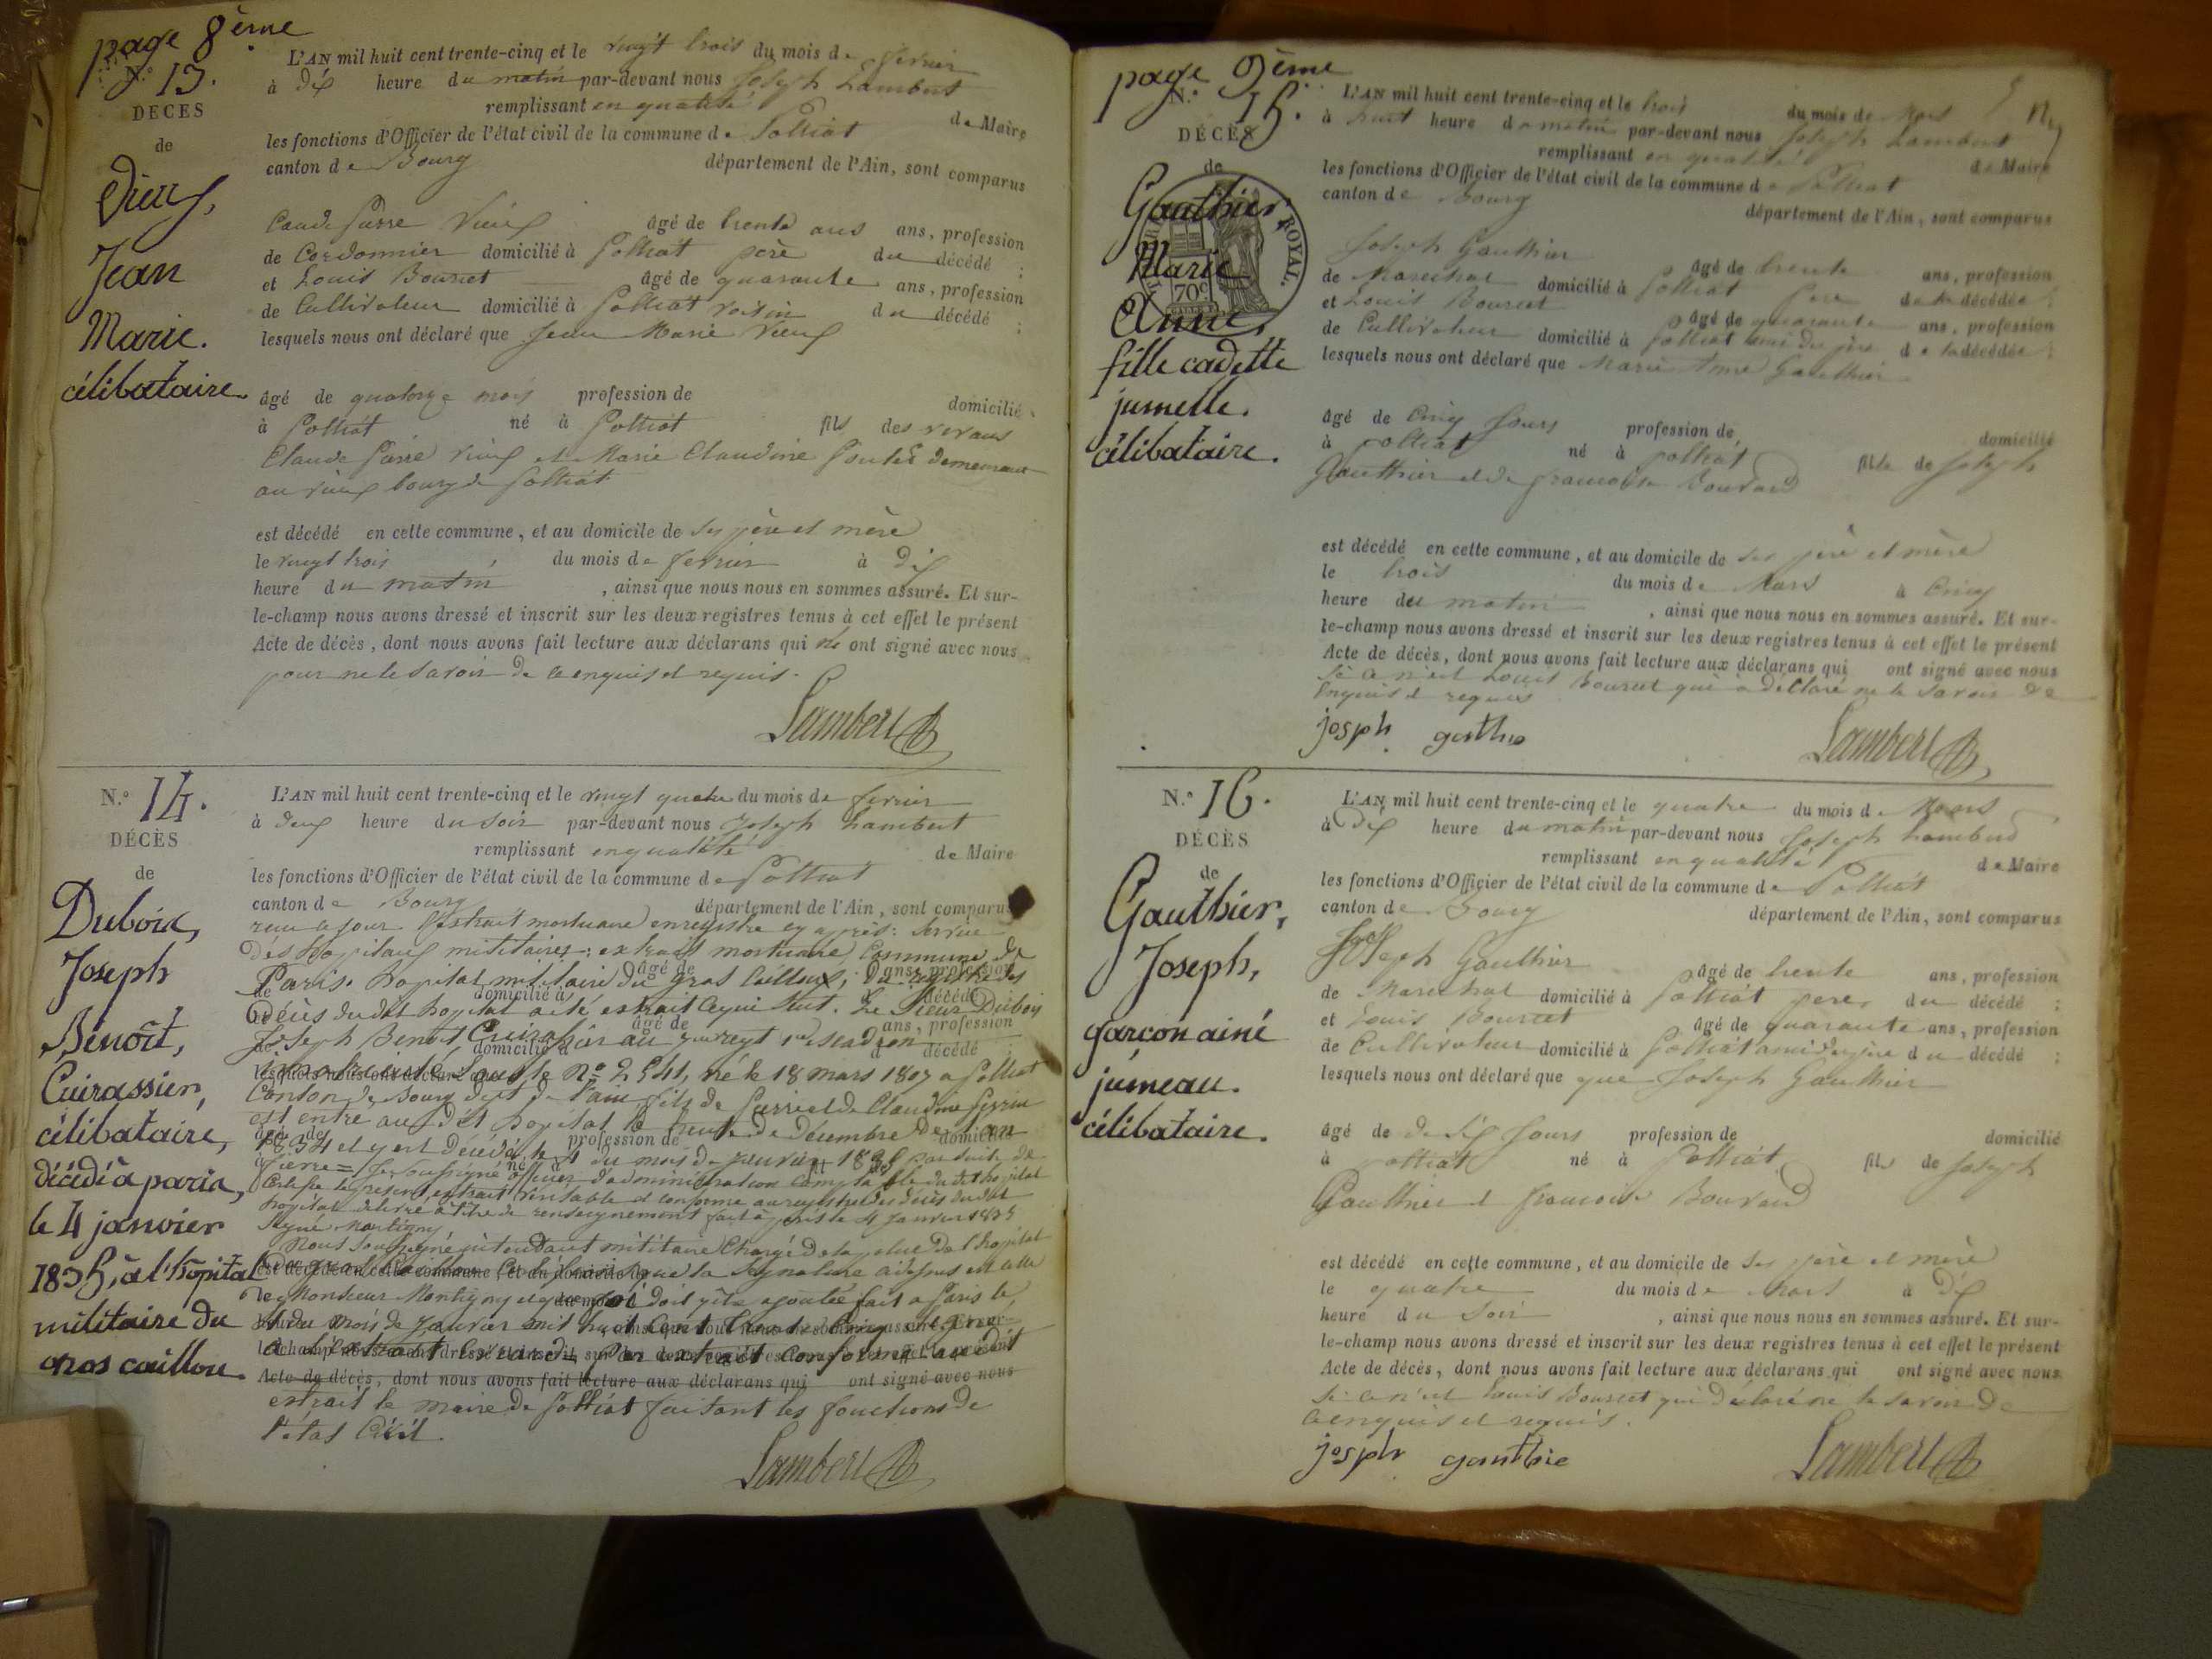 page 8ème
N.° 13.
DÉCÈS
de
Vieux,
Jean
Marie.
célibataire.
L'AN mil huit cent trente-cinq et le vingt trois du mois de février
à dix heure du matin par-devant nous Joseph Lambert
remplissant en qualité de Maire
les fonctions d'Officier de l'état civil de la commune de Polliat
canton de Bourg département de l'Ain, sont comparus
Claude Pierre Vieux âgé de trente ans ans, profession
de Cordonnier domicilié à Polliat père du décédé ;
et Louis Bourcet âgé de quarante ans, profession
de Cultivateur domicilié à Polliat voisin du décédé ;
lesquels nous ont déclaré que Jean Marie Vieux
âgé de quatorze mois profession de domicilié
à Polliat né à Polliat fils des vivans
Claude Pierre Vieux et Marie Claudine demeurant
au vieux bourg de Polliat
est décédé en cette commune, et au domicile de ses père et mère
le vingt trois du mois de fevrier à dix
heure du matin , ainsi que nous nous en sommes assuré. Et sur-
le-champ nous avons dressé et inscrit sur les deux registres tenus à cet effet le présent
Acte de décès, dont nous avons fait lecture aux déclarans qui ne ont signé avec nous
pour ne le savoir de ce enquis et requis.
Lambert
N.° 14.
DÉCÈS
de
Duboix,
Joseph
Benoît,
Cuirassier,
célibataire,
décédé à paris,
le 4 janvier
1835, à l'hôpital
militaire du
gros caillou.
L'AN mil huit cent trente-cinq et le vingt quatre du mois de fevrier
à deux heure du soir par-devant nous Joseph Lambert
remplissant en qualité de Maire
les fonctions d'Officier de l'état civil de la commune de Polliat
canton de Bourg département de l'Ain, sont comparus
reçu ce jour l'extrait mortuaire enregistré cy après: Service
des hopitaux militaires: extrait mortuaire, Commune de
Paris. hopital militaire du gros Cailloux, du registre des
Décès du dit hopital a été extrait ce qui suit. Le Sieur Dubois
Joseph Benoit Cuirassier au regt escadron
immatriculé sous le N° 2541, né le 18 mars 1807 a Polliat
Canton de Bourg dept de l'ain, fils de Pierre et de Claudine
est entré au dit hopital le de Décembre de l'an
1834 et y est Décédé le 4 du mois de Janvier 1835 par suite de
fievre = Je soussigné officier d'administration Comptable du dit hopital
Certifie le présent extrait véritable et conforme au registre des décès du dit
hopital délivré à titre de renseignement fait à paris le 4 Janvier 1835
Signé Montigny
Nous Soussigné intendant militaire Chargé de la police de l'hopital
du gros Caillou Certifions que la Signature ci dessus est celle
de Monsieur Montigny et que foi doit y être ajoutée fait a Paris le
du mois de Janvier mil huit Cent trente Cinq
Pour extrait conforme au dit
extrait le maire de Polliat faisant les fonctions de
l'état Civil.
Lambert
page 9ème
N.° 15.
DÉCÈS
de
Gauthier,
Marie
Anne,
fille cadette
jumelle.
célibataire.
ROYAL.
70c
L'AN mil huit cent trente-cinq et le trois du mois de Mars
à huit heure du matin par-devant nous Joseph Lambert
remplissant en qualité de Maire
les fonctions d'Officier de l'état civil de la commune de Polliat
canton de Bourg département de l'Ain, sont comparus
Joseph Gauthier âgé de trente ans, profession
de Marechal domicilié à Polliat père de la décédée ;
et Louis Bourcet âgé de quarante ans, profession
de Cultivateur domicilié à Polliat ami du père de la décédée ;
lesquels nous ont déclaré que Marie Anne Gauthier
âgé de Cinq Jours profession de domicilié
à polliat né à polliat fille de Joseph
Gauthier et de francoise Bouvard
est décédé en cette commune, et au domicile de ses père et mère
le trois du mois de Mars à Cinq
heure du matin , ainsi que nous nous en sommes assuré. Et sur-
le-champ nous avons dressé et inscrit sur les deux registres tenus à cet effet le présent
Acte de décès, dont nous avons fait lecture aux déclarans qui ont signé avec nous
Si ce n'est Louis Bourcet qui a déclaré ne le savoir de
Enquis et requis
josph gauthie
Lambert
N.° 16.
DÉCÈS
de
Gauthier,
Joseph,
garçon ainé
jumeau.
célibataire.
L'AN mil huit cent trente-cinq et le quatre du mois de Mars
à Dix heure du matin par-devant nous Joseph Lambert
remplissant en qualité de Maire
les fonctions d'Officier de l'état civil de la commune de Polliat
canton de Bourg département de l'Ain, sont comparus
Joseph Gauthier âgé de trente ans, profession
de Marechal domicilié à Polliat pere du décédé ;
et Louis Bourcet âgé de quarante ans, profession
de Cultivateur domicilié à Polliat ami du père du décédé ;
lesquels nous ont déclaré que que Joseph Gauthier
âgé de de Six Jours profession de domicilié
à polliat né à Polliat fils de Joseph
Gauthier et francoise Bouvard
est décédé en cette commune, et au domicile de ses père et mère
le quatre du mois de Mars à dix
heure du Soir , ainsi que nous nous en sommes assuré. Et sur-
le-champ nous avons dressé et inscrit sur les deux registres tenus à cet effet le présent
Acte de décès, dont nous avons fait lecture aux déclarans qui ont signé avec nous
Si ce n'est Louis Bourcet qui a déclaré ne le savoir de
ce enquis et requis.
josphr gauthie
Lambert